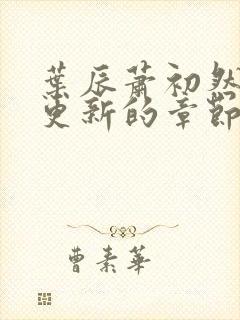 葉辰蕭初然
更新的章節
曹素華